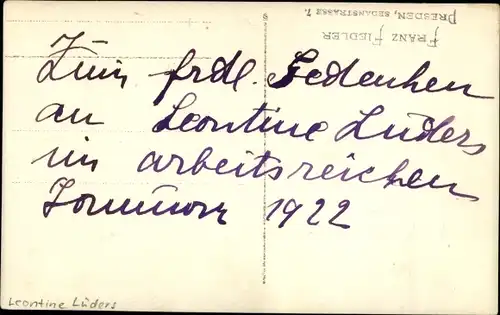 FRANZ FIEDLER
DRESDEN, SEDANSTRASSE 7.
Zum frdl. Gedenken
an Leontine Lüders
im arbeitsreichen
Sommer 1922
Leontine Lüders